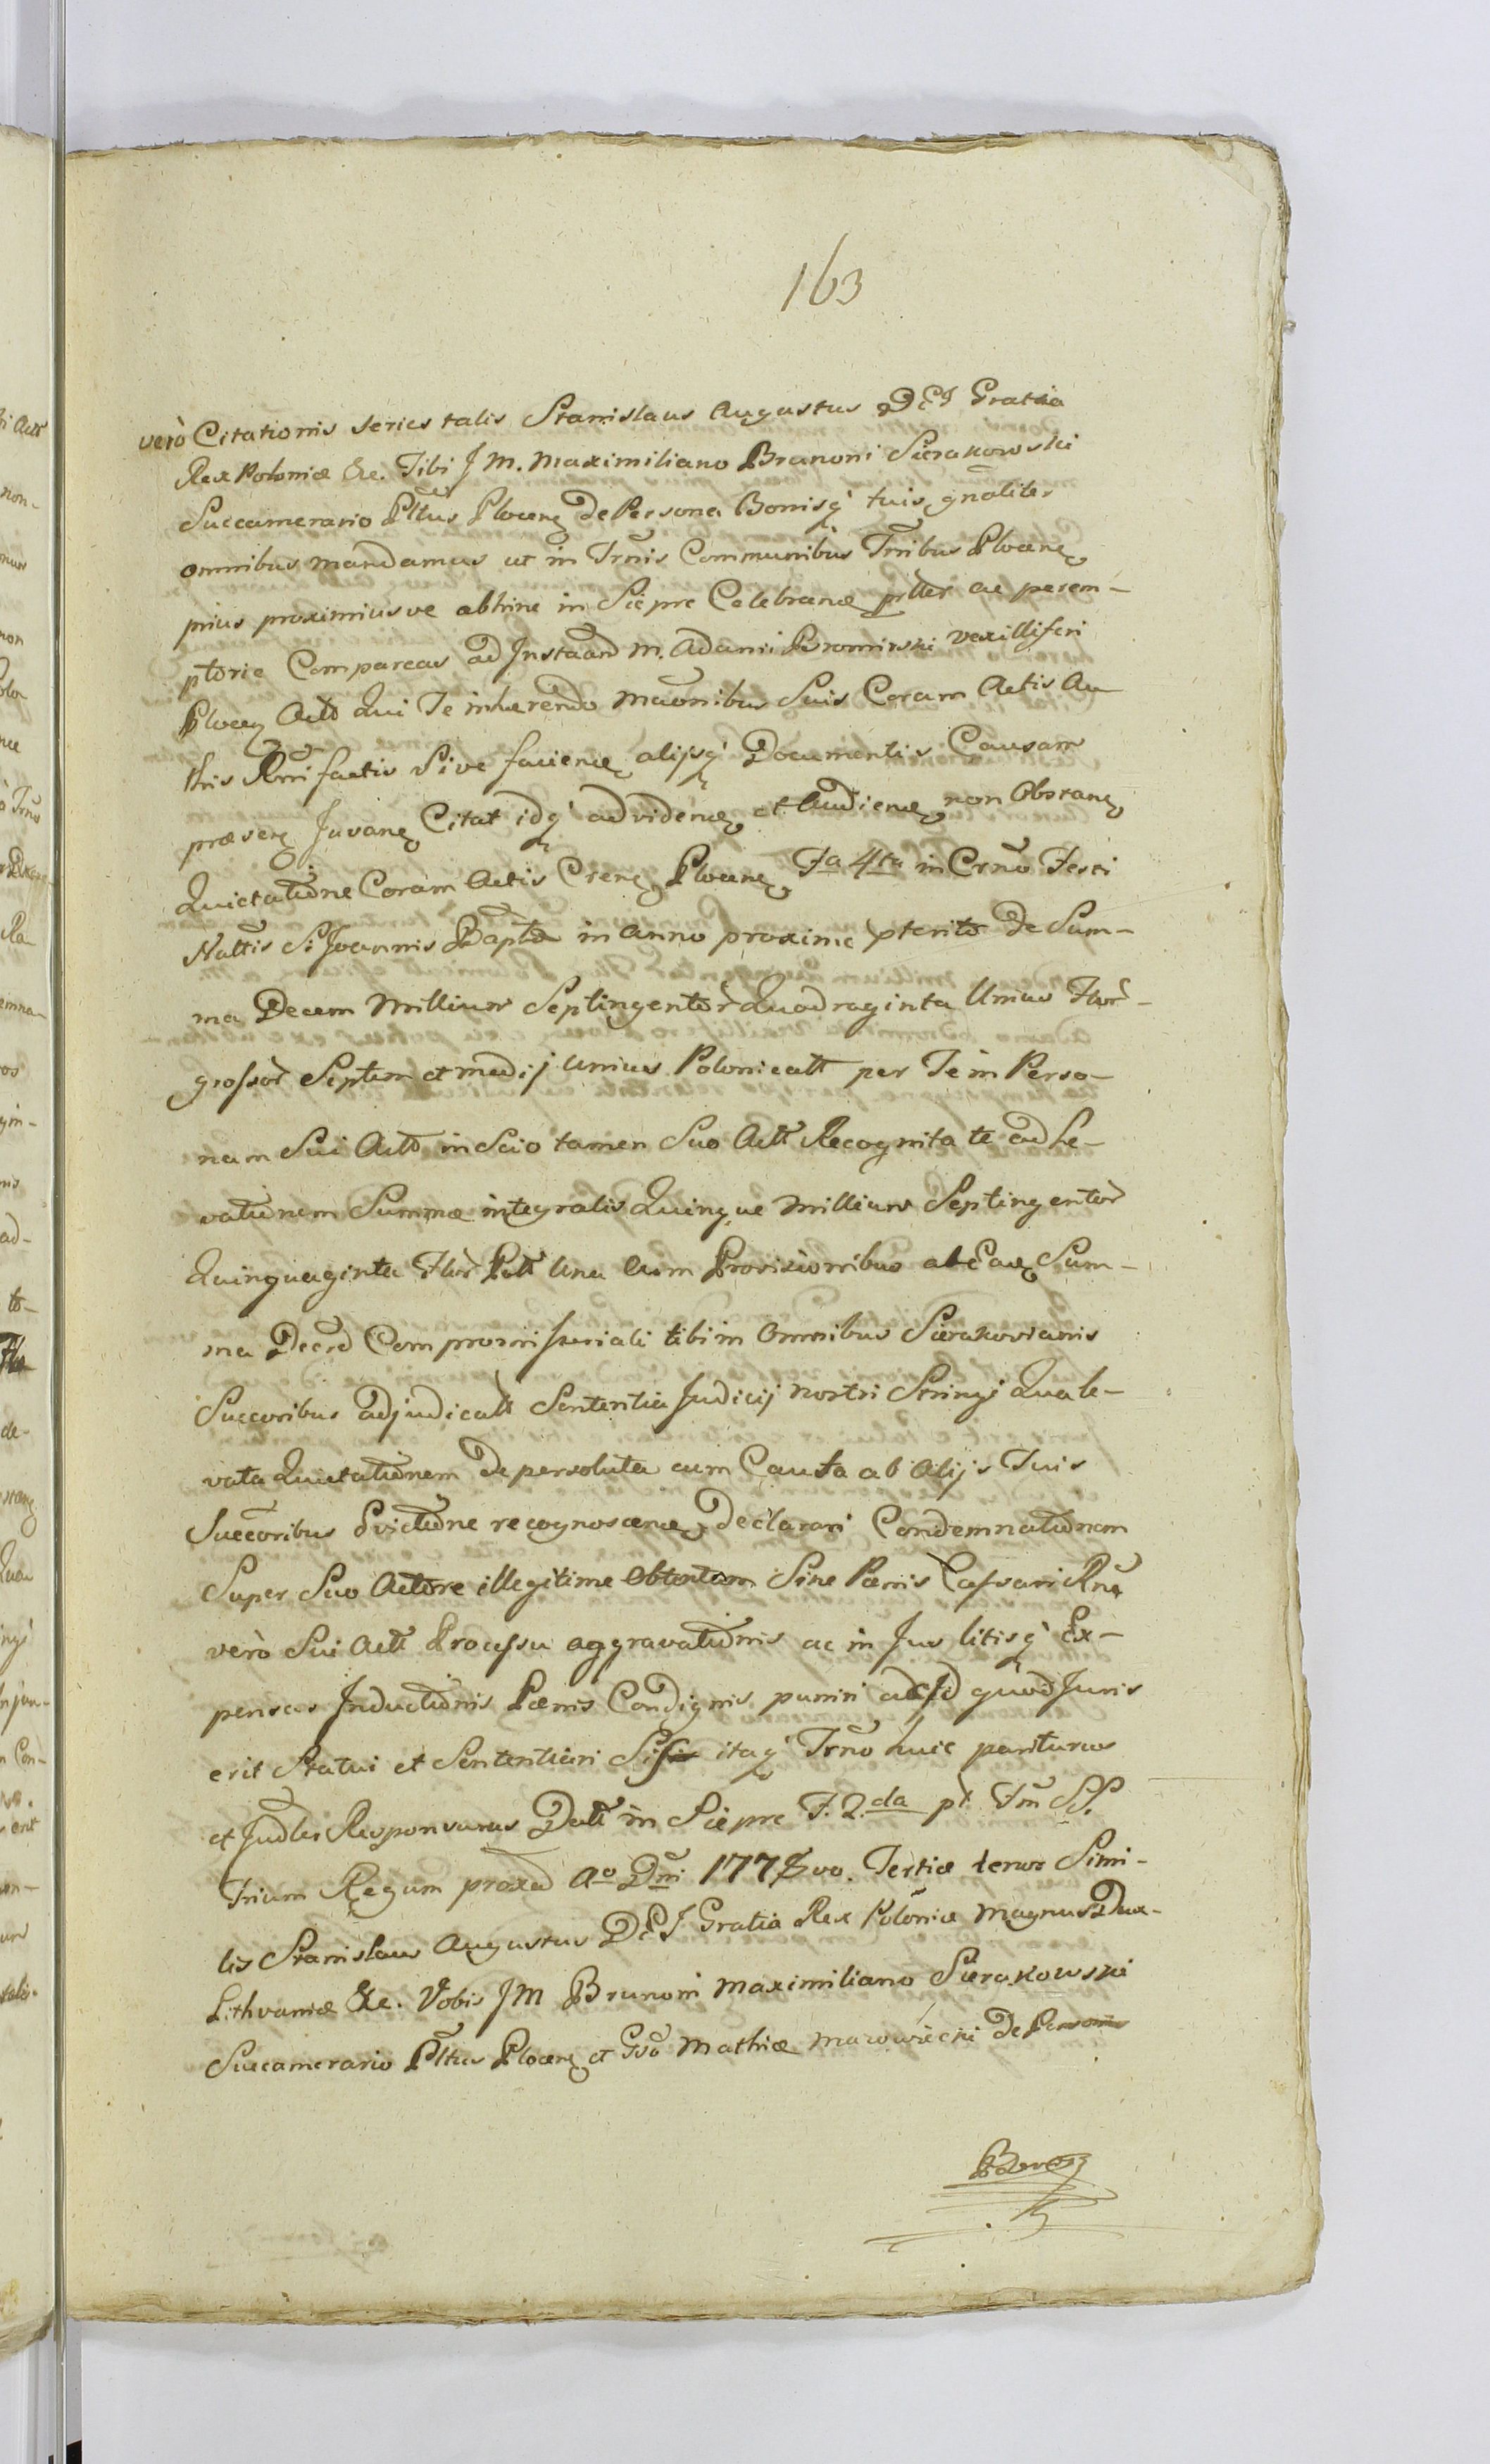 163
verò Citationis series talis Stanislaus Augustus DEI Gratia
Rex Poloniæ &c. Tibi J M. Maximiliano Brunoni Sierakowski
Succamerario Pltus Plocen de Persona Bonisq tuis gnaliter
omnibus mandamus ut in Trnis Communibus Tribus Plocen
prius proximiusve abhinc in Sieprc Celebrand prtter ac perem-
ptorie Compareas ad Instaad M. Adami Bromirski Vexilliferi
Plocen Actt Qui Te inhærendo Maonibus Suis Coram Actis Au
this Rmi factis Sive faciend alijsq Documentis Causam
præsen Juvan Citat idq ad vidend et Audiend non Obstan
Quietatione Coram Actis Cren Plocen Fa 4ta in Crno Festi
Nattis S. Joannis Bapta in anno proxime pterito de Sum-
ma Decem Millium Septingentor Quadraginta Unius Flor-
grossor Septem et medij unius Polonicatt per Te in Perso-
nam Sui Actt inscio tamen Suo Actt Recognita te ad Le-
vationem Summæ integralis Quinque Millium Septingentor
Quinquaginta Flor Patt una Cum Provisionibus ab Ead Sum-
ma Decrd Compromisseriali tibi in Omnibus Sierakovianis
Succoribus adjudicatt Sententia Judicij nostri Stringi Qua le-
vata Quietationem de persoluta cum Cauta ab Alijs Tuis
Succoribus Evictione recognoscend declarari Condemnationem
Super Suo Actore illegitime Obtentam Sine Pœnis Cassari Rna
verò Sui Actt Processu aggravationis ac in Jus litisq Ex-
pensas Inductionis Pœnis Condignis puniri ac Id quod Juris
erit Statui et Sententiari Sis itaq Trno huic pariturus
et Judler Responsurus Datt in Sieprc F. 2da pt Fm SS.
Trium Regum proxa Ao Dni 1778vo. Tertiæ tenor Simi-
lis Stanislaus Augustus DEI Gratia Rex Poloniæ Magnus Dux-
Lithvaniæ &c. Vobis JM Brunoni Maximiliano Sierakowski
Succamerario Pltus Plocen et Gso Mathiæ Mazowiecki de Personis